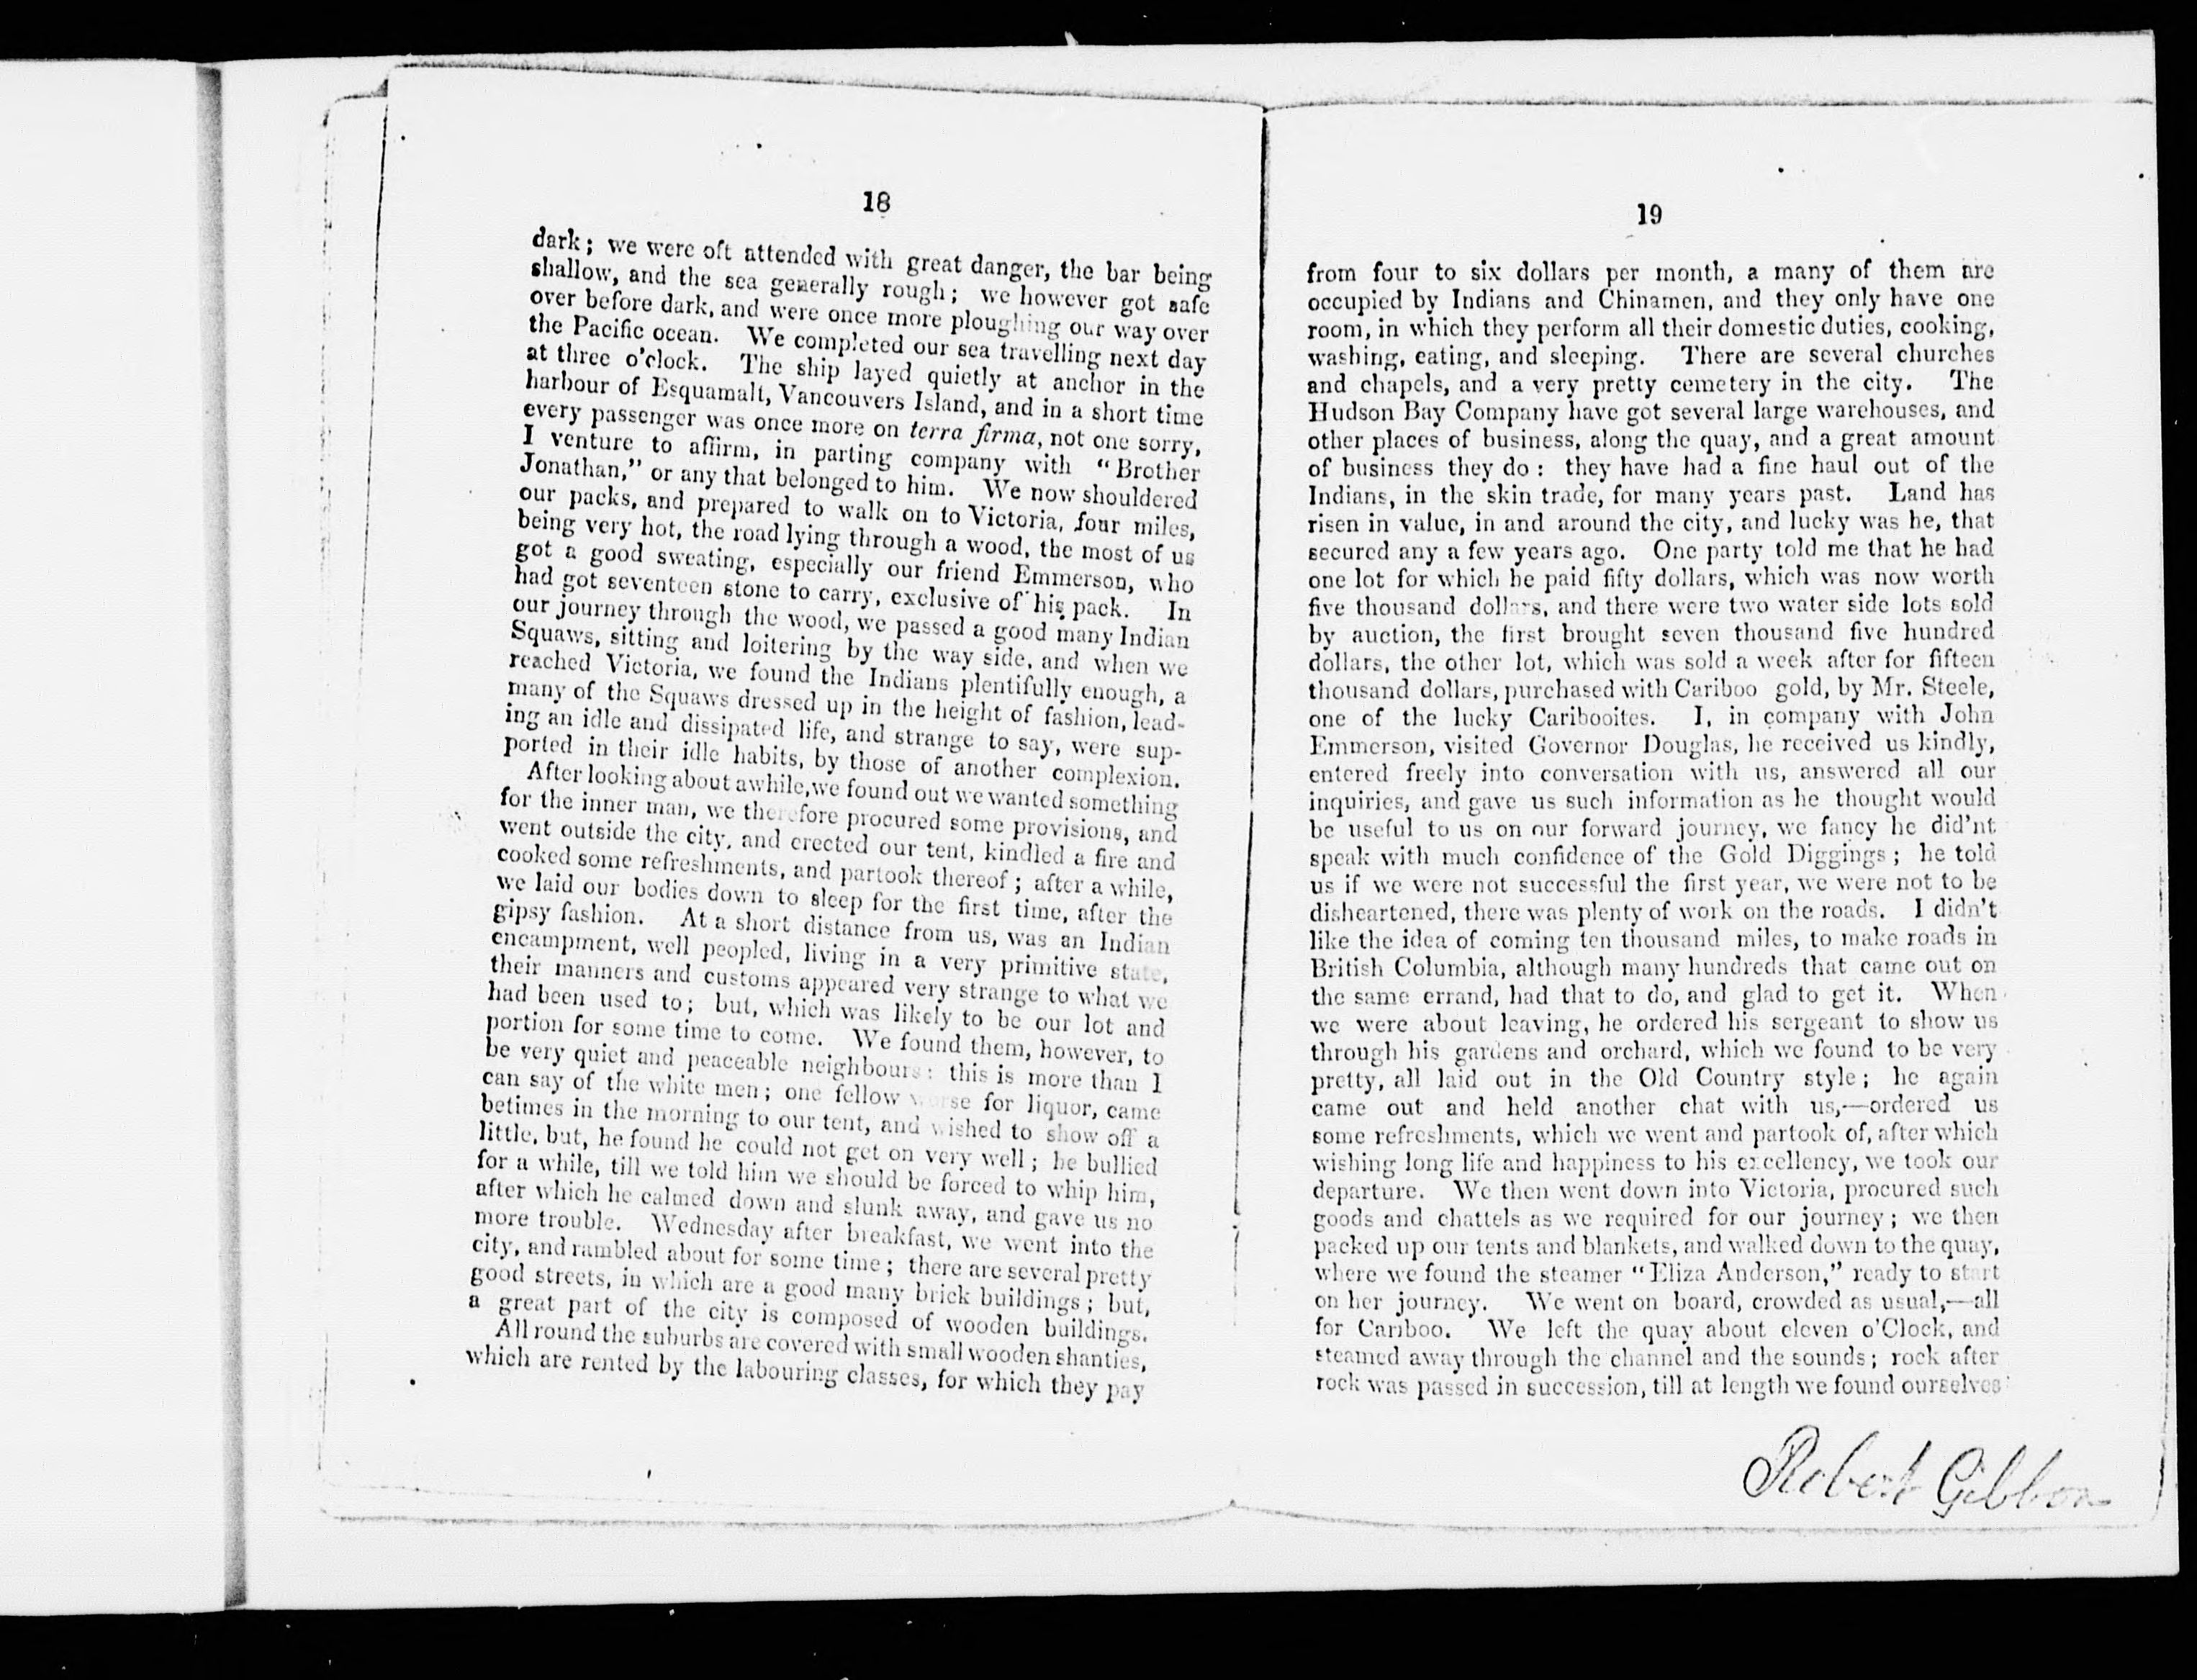 18
dark; we were oft attended with great danger, the bar being
shallow, and the sea generally rough; we however got safe
over before dark, and were once more ploughing our way over
the Pacific ocean. We completed our sea travelling next day
at three o'clock. The ship layed quietly at anchor in the
harbour of Esquamalt, Vancouvers Island, and in a short time
every passenger was once more on terra firma, not one sorry,
I venture to affirm, in parting company with "Brother
Jonathan," or any that belonged to him. We now shouldered
our packs, and prepared to walk on to Victoria, four miles,
being very hot, the road lying through a wood, the most of us
got a good sweating, especially our friend Emmerson, who
had got seventeen stone to carry, exclusive of his pack. In
our journey through the wood, we passed a good many Indian
Squaws, sitting and loitering by the way side, and when we
reached Victoria, we found the Indians plentifully enough, a
many of the Squaws dressed up in the height of fashion, lead-
ing an idle and dissipated life, and strange to say, were sup-
ported in their idle habits, by those of another complexion.
After looking about awhile, we found out we wanted something
for the inner man, we therefore procured some provisions, and
went outside the city, and erected our tent, kindled a fire and
cooked some refreshments, and partook thereof; after a while,
we laid our bodies down to sleep for the first time, after the
gipsy fashion. At a short distance from us, was an Indian
encampment, well peopled, living in a very primitive state,
their manners and customs appeared very strange to what we
had been used to; but, which was likely to be our lot and
portion for some time to come. We found them, however, to
be very quiet and peaceable neighbours: this is more than I
can say of the white men; one fellow worse for liquor, came
betimes in the morning to our tent, and wished to show off a
little, but, he found he could not get on very well; he bullied
for a while, till we told him we should be forced to whip him,
after which he calmed down and slunk away, and gave us no
more trouble. Wednesday after breakfast, we went into the
city, and rambled about for some time; there are several pretty
good streets, in which are a good many brick buildings; but,
a great part of the city is composed of wooden buildings.
All round the suburbs are covered with small wooden shanties,
which are rented by the labouring classes, for which they pay
19
from four to six dollars per month, a many of them are
occupied by Indians and Chinamen, and they only have one
room, in which they perform all their domestic duties, cooking,
washing, eating, and sleeping. There are several churches
and chapels, and a very pretty cemetery in the city. The
Hudson Bay Company have got several large warehouses, and
other places of business, along the quay, and a great amount
of business they do: they have had a fine haul out of the
Indians, in the skin trade, for many years past. Land has
risen in value, in and around the city, and lucky was he, that
secured any a few years ago. One party told me that he had
one lot for which he paid fifty dollars, which was now worth
five thousand dollars, and there were two water side lots sold
by auction, the first brought seven thousand five hundred
dollars, the other lot, which was sold a week after for fifteen
thousand dollars, purchased with Cariboo gold, by Mr. Steele,
one of the lucky Caribooites. I, in company with John
Emmerson, visited Governor Douglas, he received us kindly,
entered freely into conversation with us, answered all our
inquiries, and gave us such information as he thought would
be useful to us on our forward journey, we fancy he did'nt
speak with much confidence of the Gold Diggings; he told
us if we were not successful the first year, we were not to be
disheartened, there was plenty of work on the roads. I didn't
like the idea of coming ten thousand miles, to make roads in
British Columbia, although many hundreds that came out on
the same errand, had that to do, and glad to get it. When
we were about leaving, he ordered his sergeant to show us
through his gardens and orchard, which we found to be very
pretty, all laid out in the Old Country style; he again
came out and held another chat with us,—ordered us
some refreshments, which we went and partook of, after which
wishing long life and happiness to his excellency, we took our
departure. We then went down into Victoria, procured such
goods and chattels as we required for our journey; we then
packed up our tents and blankets, and walked down to the quay,
where we found the steamer "Eliza Anderson," ready to start
on her journey. We went on board, crowded as usual,—all
for Cariboo. We left the quay about eleven o'Clock, and
steamed away through the channel and the sounds; rock after
rock was passed in succession, till at length we found ourselves
Robert Gibbon